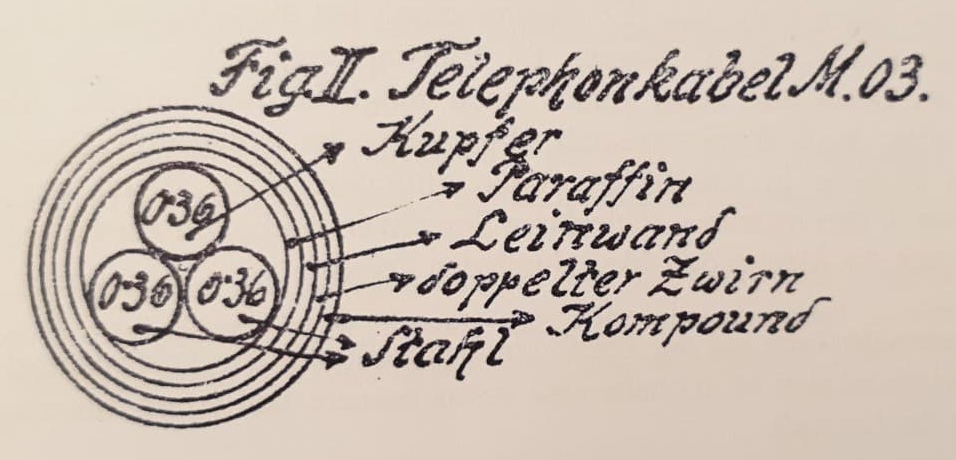 Fig II. Telephonkabel M. 03.
Kupfer
Paraffin
Leinwand
doppelter Zwirn
Kompound
Stahl
0·36
0·36 0·36